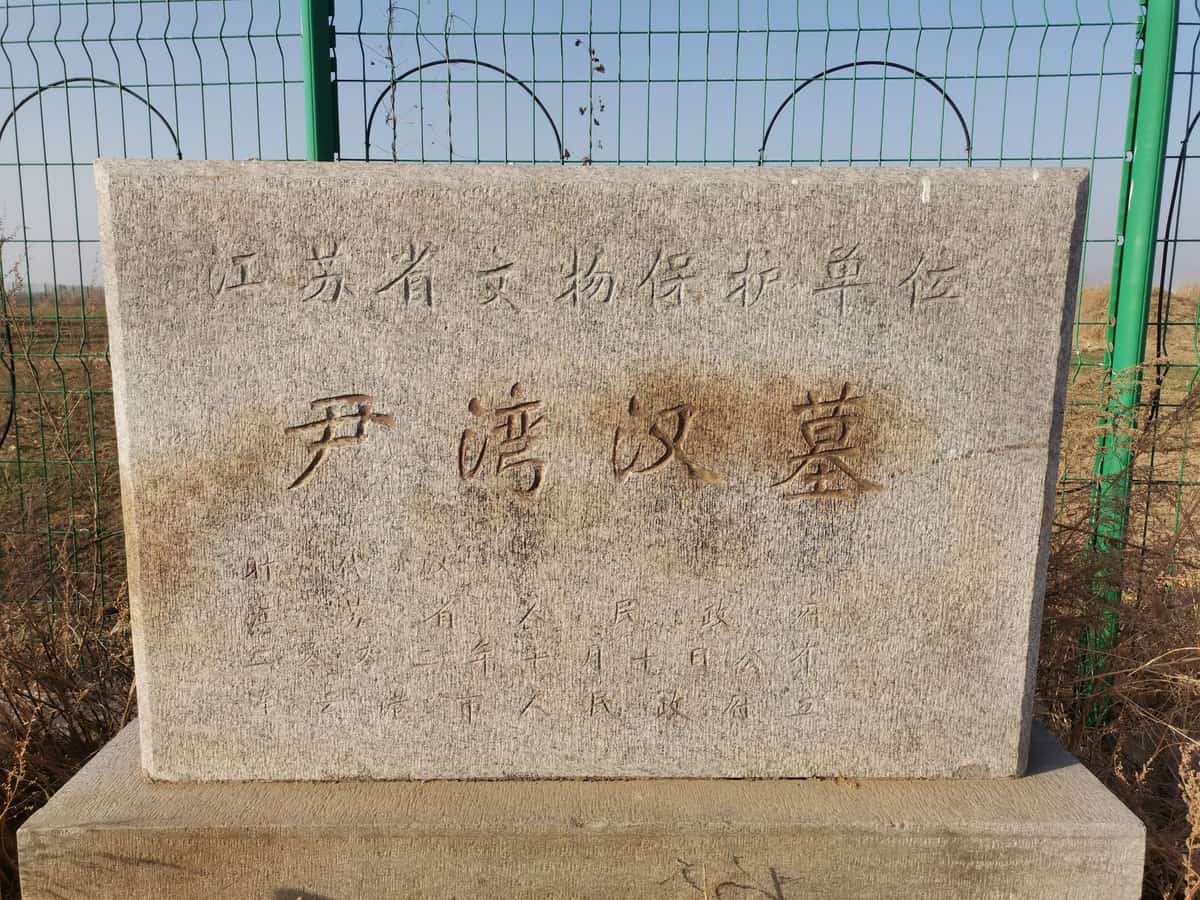 江苏省文物保护单位
尹湾汉墓
时代 汉
江苏省人民政府
二零零二年十月十日公布
连云港市人民政府立